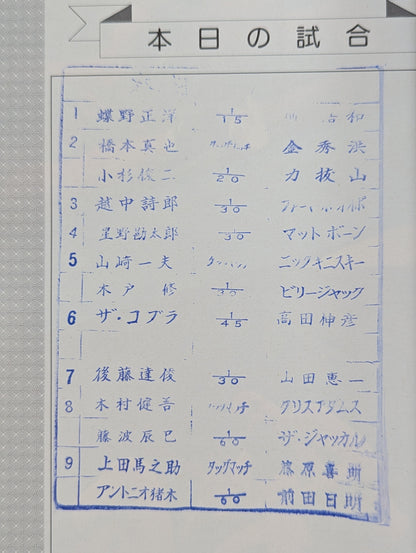 本日の試合
1 蝶野正洋 1/15 和
2 橋本真也 タッグマッチ 金秀洪
小杉俊二 1/20 力抜山
3 越中詩郎 1/30
4 星野勘太郎 1/30 マットボーン
5 山崎一夫 タッグマッチ ニックキニスキー
木戸修 1/30 ビリージャック
6 ザ・コブラ 1/45 高田伸彦
7 後藤達俊 1/30 山田恵一
8 木村健吾 タッグマッチ クリスアダムス
藤波辰巳 1/60 ザ・ジャッカル
9 上田馬之助 タッグマッチ 藤原喜明
アントニオ猪木 1/60 前田日明